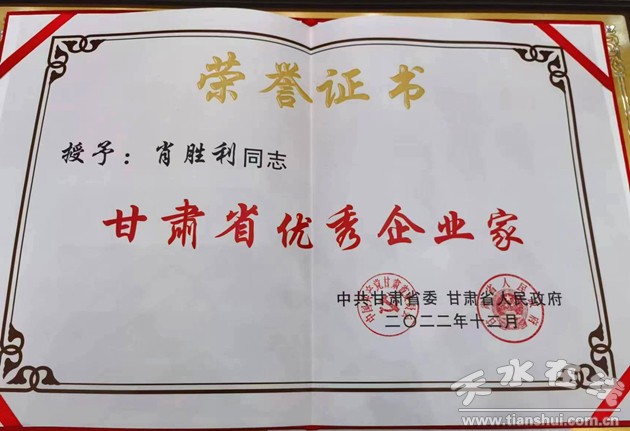 荣誉证书
授予：肖胜利同志
甘肃省优秀企业家
中共甘肃省委 甘肃省人民政府
二〇二二年十二月
天水在线
www.tianshui.com.cn